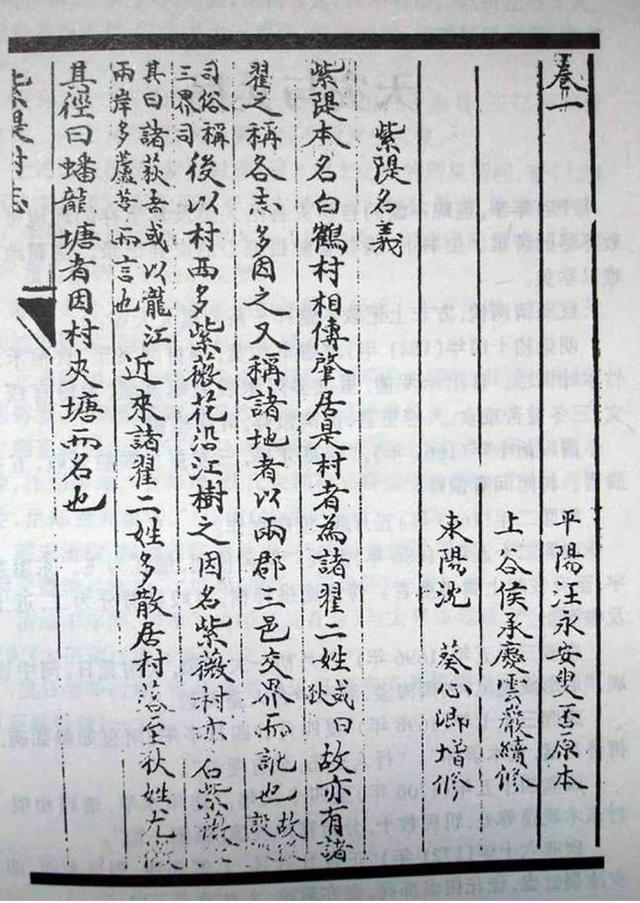 卷一
平陽汪永安叟否原本
上谷侯承慶雲嚴續修
東陽沈葵心卿增修
紫隄名義
紫隄本名白鶴村相傳肇居是村者為諸翟二姓或曰狄故亦有諸
翟之稱各志多因之又稱諸地者以兩郡三邑交界而訛也故
司俗稱三界司後以村西多紫薇花沿江樹之因名紫薇村亦名紫隄
其曰諸荻者或以瀧江兩岸多蘆荻而言也近來諸翟二姓多散居村落至狄姓尤
其徑曰蟠龍塘者因村夾塘而名也
紫隄村志